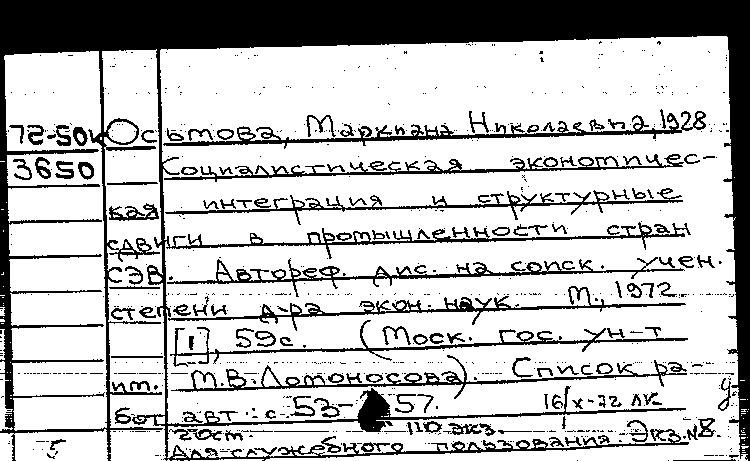 72-50к Осьмова, Маркиана Николаевна, 1928
3650 Социалистическая экономичес-
кая интеграция и структурные
сдвиги в промышленности стран
СЭВ. Автореф. дис. на соиск. учен.
степени д-ра экон. наук. М., 1972.
[1], 59с. (Моск. гос. ун-т
им. М.В. Ломоносова). Список ра-
бот авт.: с. 53-57. 16/X-72 ЛК
110 экз.
Для служебного пользования. Экз. №8.
5